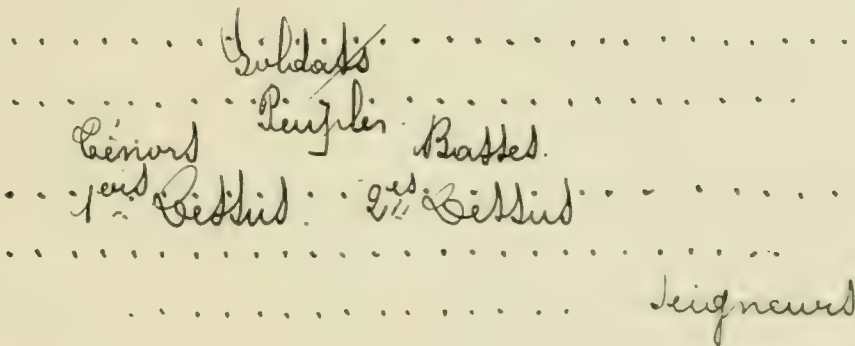 Soldats
Peuples
Ténors Basses.
1ers Dessus. 2es Dessus
Seigneurs